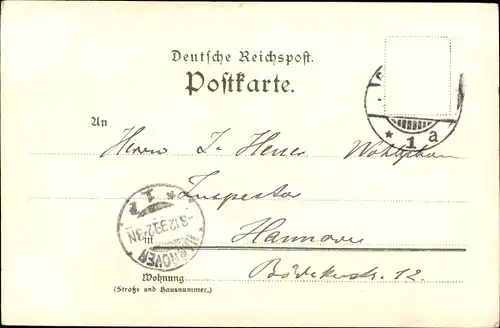 Deutsche Reichspost.
Postkarte.
* 1 a
An
Herrn J. Heuer Wohlgeboren
Inspector
* 1 *
8.12.99.2-3N
HANNOVER
in Hannover
Bödekerstr. 12.
Wohnung
(Straße und Hausnummer.)